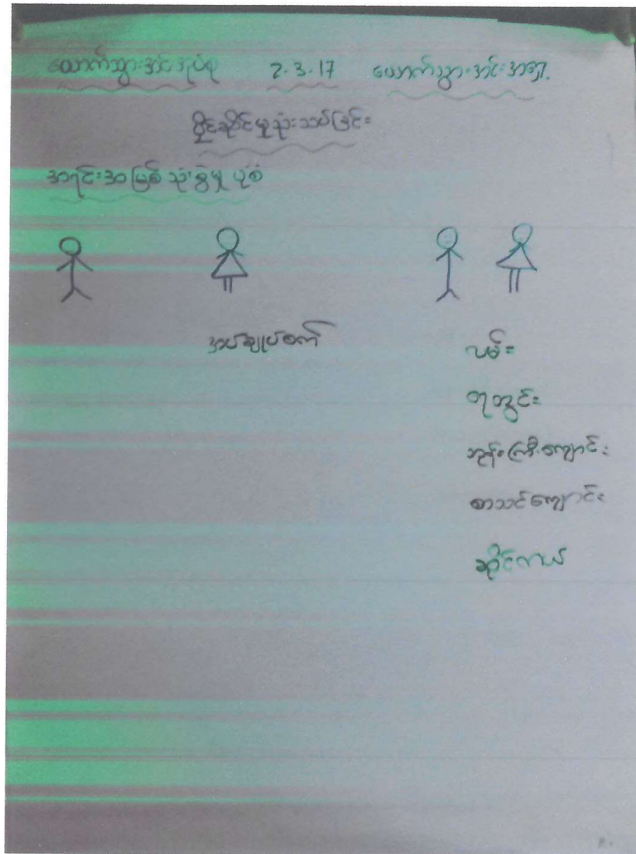 ယောက်သွားအင်းအုပ်စု 2.3.17 ယောက်သွားအင်းအရှေ့
ပိုင်ဆိုင်မှုသုံးသပ်ခြင်း
အရင်းအမြစ် သုံးစွဲမှု ပုံစံ
အပ်ချုပ်စက်
လမ်း
ရေတွင်း
ဘုန်းကြီးကျောင်း
စာသင်ကျောင်း
ဆိုင်ကယ်